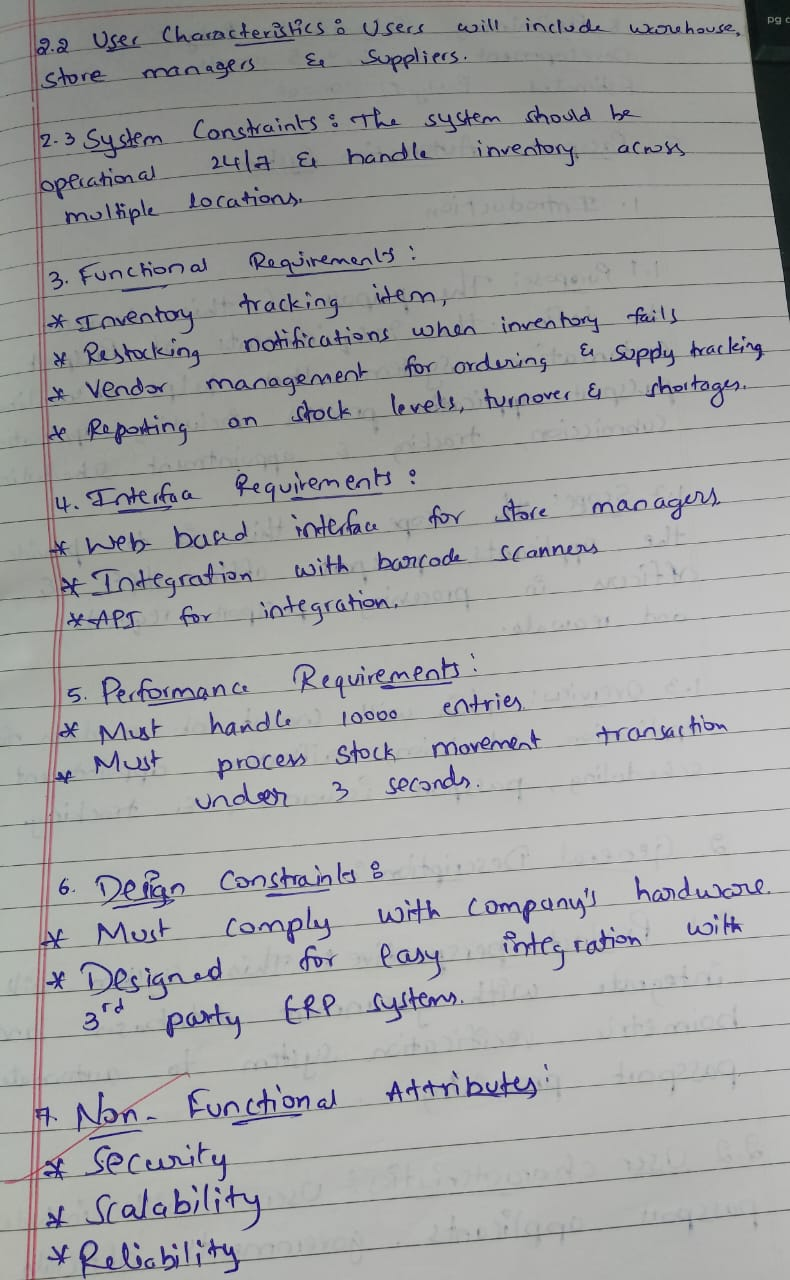 pg
2.2 User Characteristics : Users will include warehouse,
store managers & Suppliers.
2.3 System Constraints : The system should be
operational 24/7 & handle inventory across
multiple locations.
3. Functional Requirements :
* Inventory tracking item,
* Restocking notifications when inventory fails
* Vendor management for ordering & supply tracking
* Reporting on stock levels, turnover & shortages.
4. Interfaa Requirements :
* Web baed interface for store managers
* Integration with barcode scanners
* API for integration.
5. Performance Requirements :
* Must handle 10000 entries
* Must process stock movement transaction
under 3 seconds.
6. Design Constraints :
* Must comply with company's hardware.
* Designed for easy integration with
3rd party ERP systems.
7. Non-Functional Attributes :
* Security
* Scalability
* Reliability